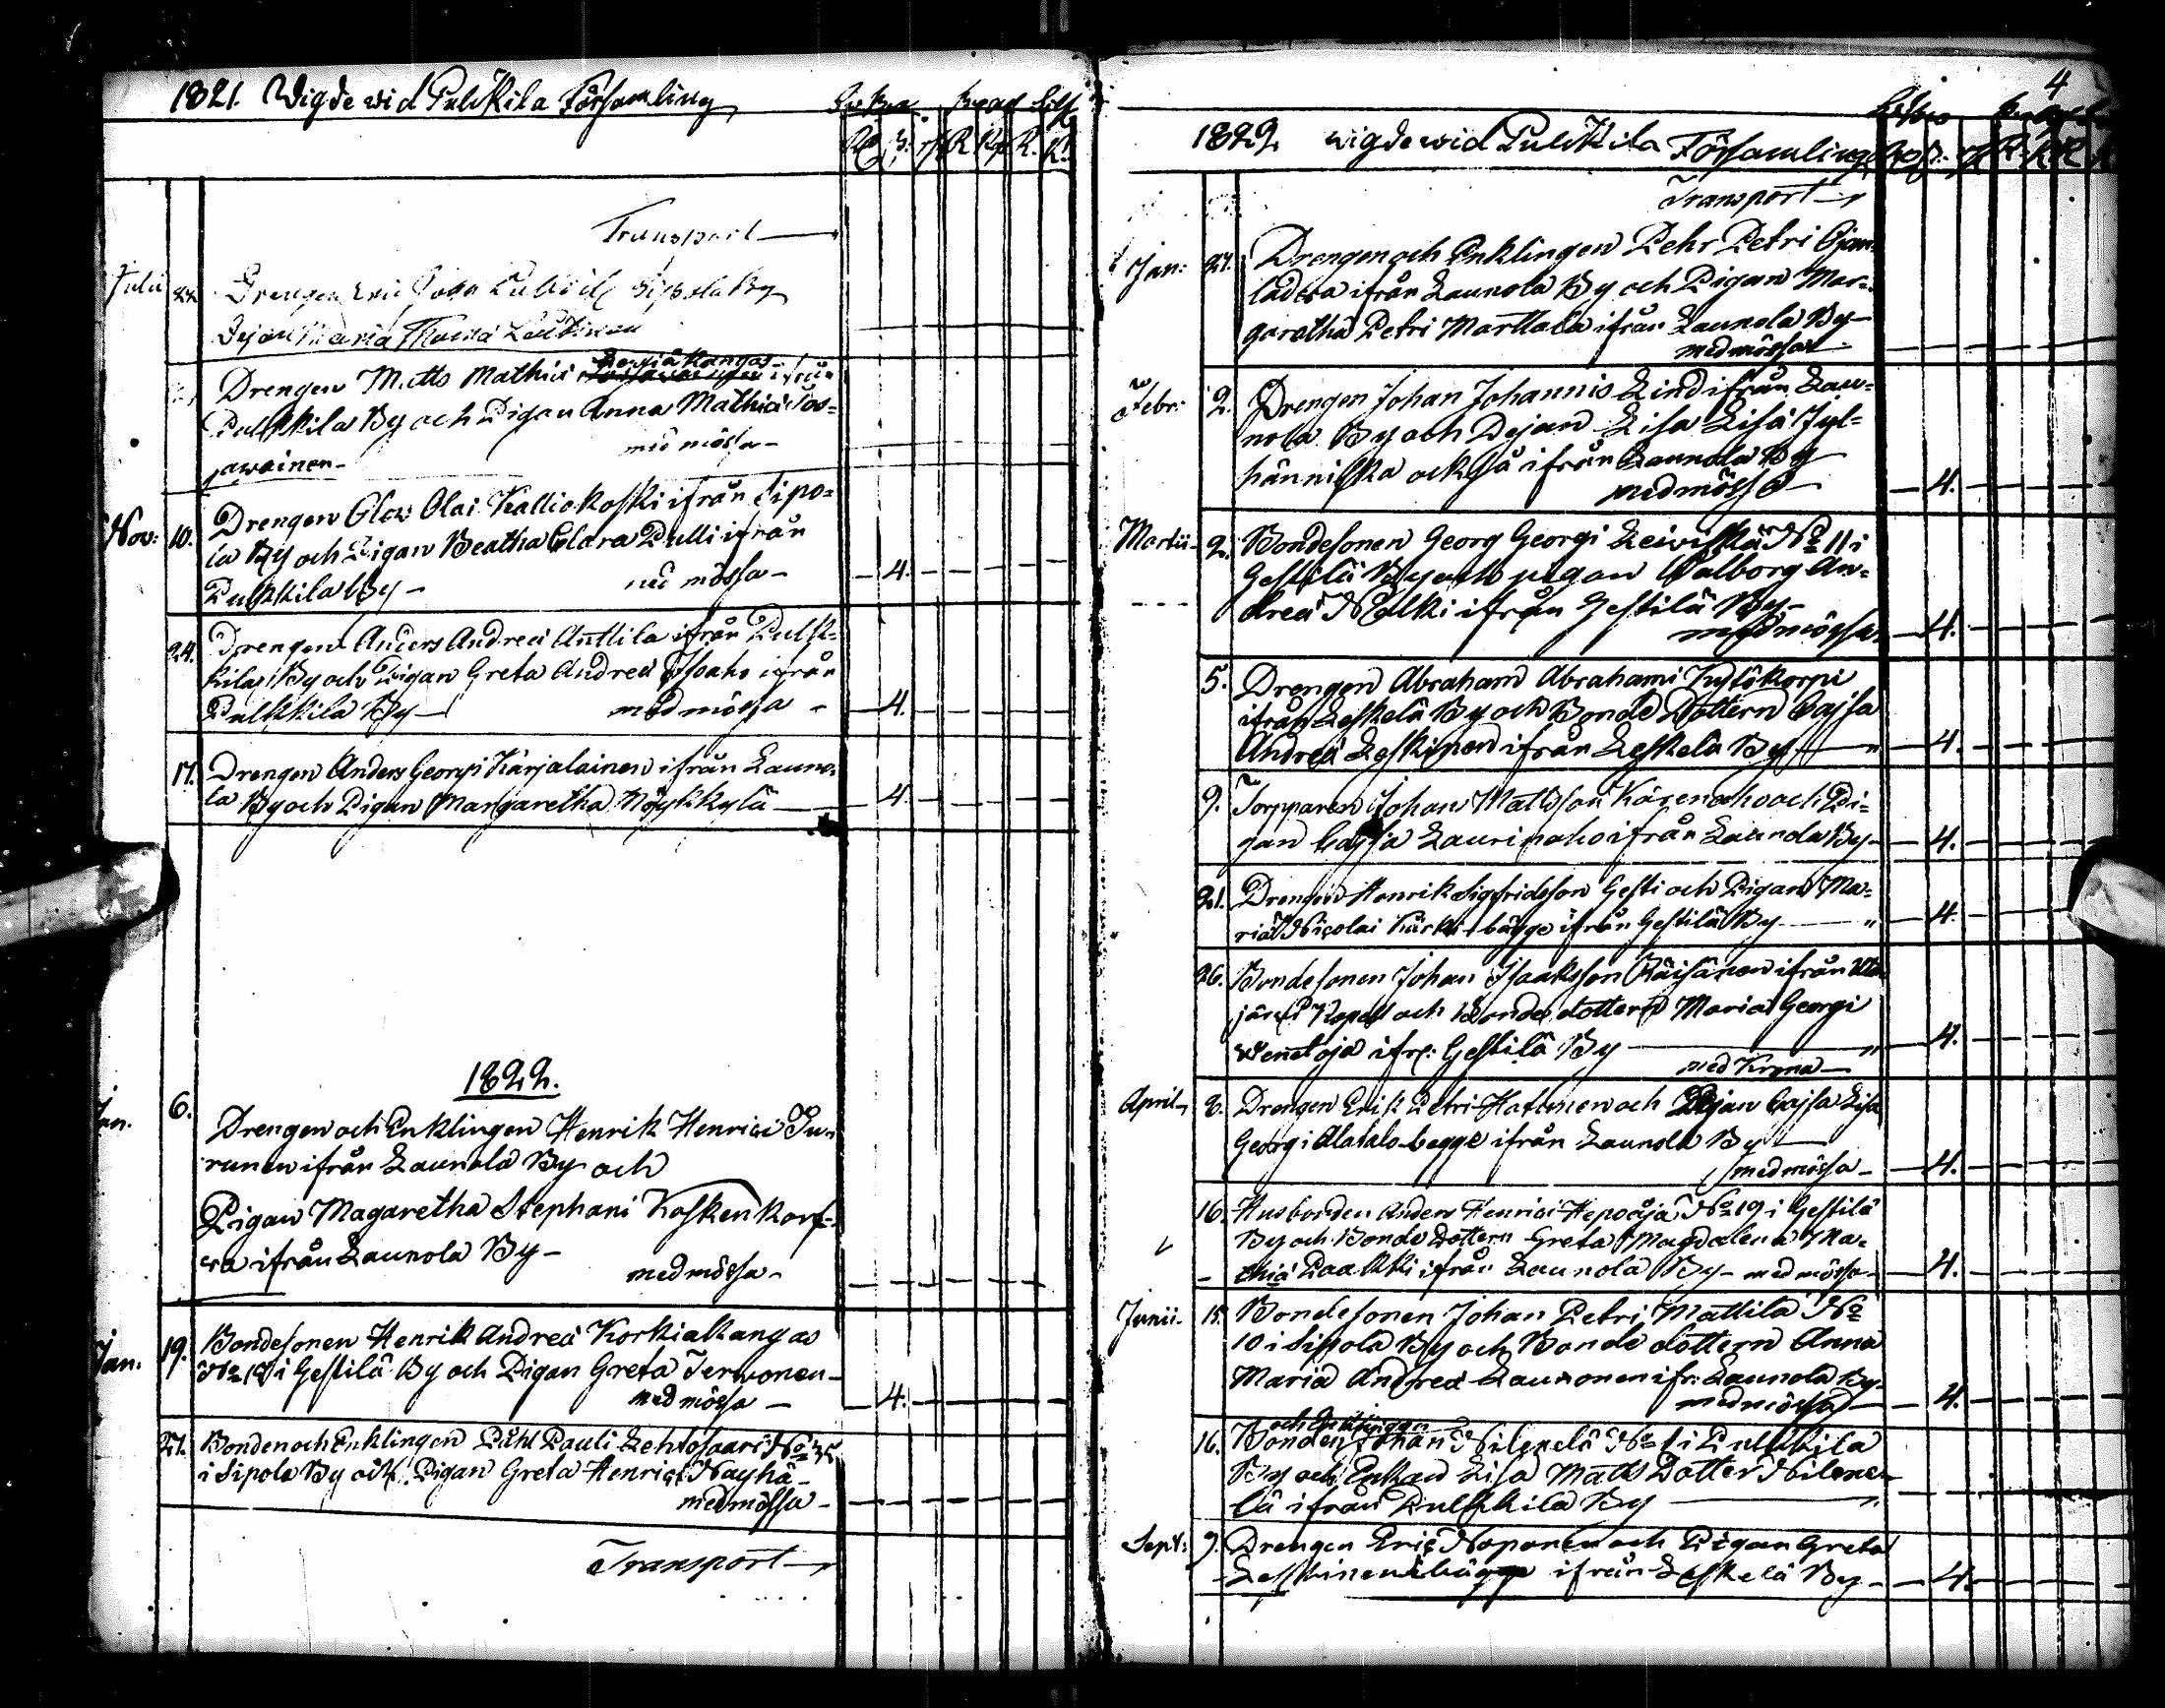 1821. Wigde wid Pulkkila Församling
Transport
Julii 22. Drengen Eric Johan
Pigan Maria Thomæ
Drengen Matts Mathiæ ifrån
Pulkkila By och Pigan Anna Mathiæ Sos-
jawainen- med mössa-
Nov: 10. Drengen Olov Olai Kalliokoski ifrån Sipo-
la By och Pigan Beatha Clara Pulli ifrån
Pulkkila By - med mössa - 4.
24. Drengen Anders Andreæ Anttila ifrån Pulk-
kila By och Pigan Greta Andreæ Isoaho ifrån
Pulkkila By - med mössa - 4.
17. Drengen Anders Georgi Karjalainen ifrån Launo-
la By och Pigan Margaretha Möykkylä 4.
1822.
Jan. 6. Drengen och Enklingen Henrik Henrici Pu-
runen ifrån Launola By och
Pigan Magaretha Stephani Koskenkorf-
va ifrån Launola By - med mössa -
Jan. 19. Bondesonen Henrik Andreæ Korkiakangas
i Gestilä By och Pigan Greta Terwonen -
med mössa - 4.
27. Bonden och Enklingen Påhl Pauli Lehtosaari
i Sipola By och Pigan Greta Henrici Nayhä -
med mössa -
Transport
4
1822. wigde wid Pulkkila Församling
Transport
Jan: 27. Drengen och Enklingen Pehr Petri Ojan-
latva ifrån Launola By och Pigan Mar-
garetha Petri Marttala ifrån Launola By -
med mössa
Febr: 2. Drengen Johan Johannis Lind ifrån Lau-
nola By och Pejan Lisa Lisä Jyl-
hänniska också ifrån Launola By
med mössa - 4.
Martii - 2. Bondesonen Georg Georgi Leiviskä No 11 i
Gestilä By och pigan Walborg An-
dreæ Nalki ifrån Gestilä By -
med mössa 4.
5. Drengen Abraham Abrahami Kytökorpi
ifrån Leskelä By och Bonde Dottern Cajsa
Andreæ Leskinen ifrån Leskelä By 4.
9. Torpparen Johan Mattsson Kärenaho och Pi-
gan Cajsa Laurinaho ifrån Launola By - 4.
21. Drengen Henrik Sigfridsson Gesti och Pigan Ma-
ria Nicolai Kärki bägge ifrån Gestilä By 4.
26. Bondesonen Johan Isaaksson Räisänen ifrån
järvi Kapell och Bonde dottern Maria Georgi
Wenetoja ifr: Gestilä By 4.
med Krona
April 8. Drengen Erik Petri Hatunen och Pigan Cajsa Lisa
Georgi Alatalo begge ifrån Launola By
med mössa - 4.
16. Husbonden Anders Henrici Hepooja No 19 i Gestilä
By och Bonde Dottern Greta Magdalena Ma-
thiæ Paakki ifrån Launola By - med mössa - 4.
Junii - 15. Bondesonen Johan Petri Mattila No
10 i Sipola By och Bonde dottern Anna
Maria Andreæ Launonen ifr: Launola By -
med mössa 4.
och Enklingen
16. Bonden Johan Nilenelä No 1 i Pulkkila
By och Enkan Lisa Matts Dotter Nilene-
lä ifrån Pulkkila By
Sept: 9. Drengen Eric Noponen och Pigan Greta
Leskinen bägge ifrån Leskelä By - 4.